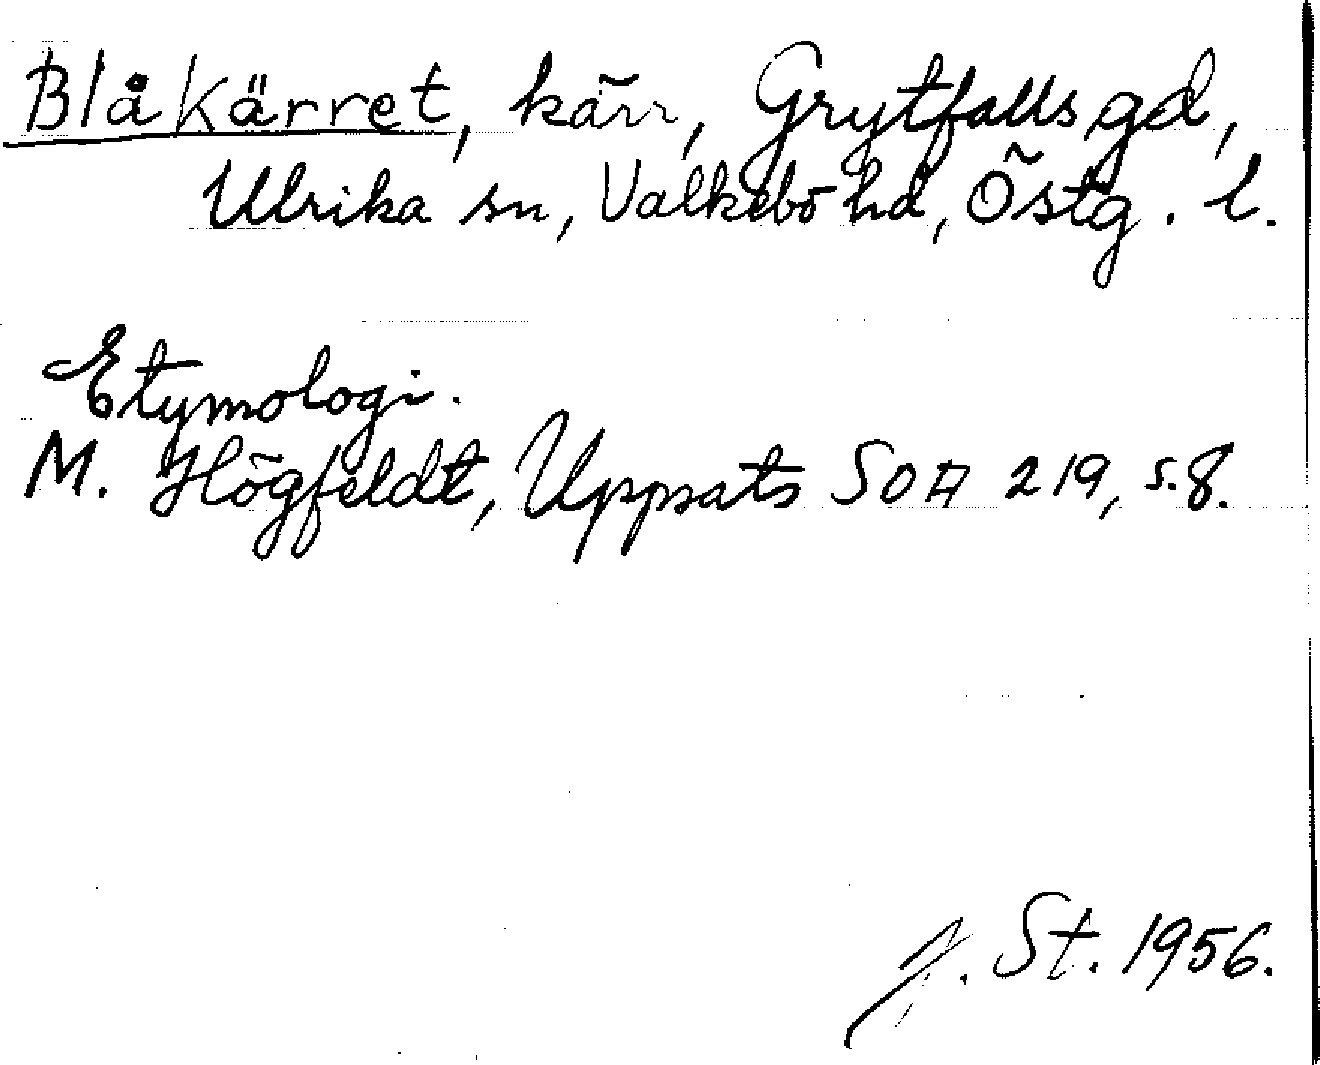 Blåkärret, kärr, Grytfalls gd,
Ulrika sn, Valkebo hd, Östg. l.
Etymologi.
M. Högfeldt, Uppsats SOA 219, s.8.
J. St. 1956.